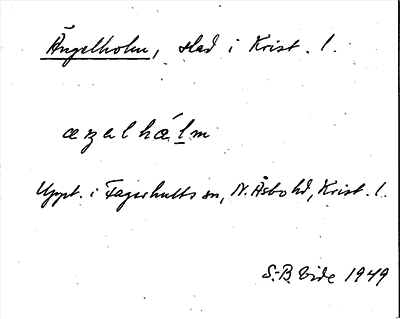 Ängelholm, stad i Krist. l.
æŋəlhǽlm
Uppt. i Fagerhults sn, N. Åsbo hd, Krist. l.
S.-B. Vide 1949